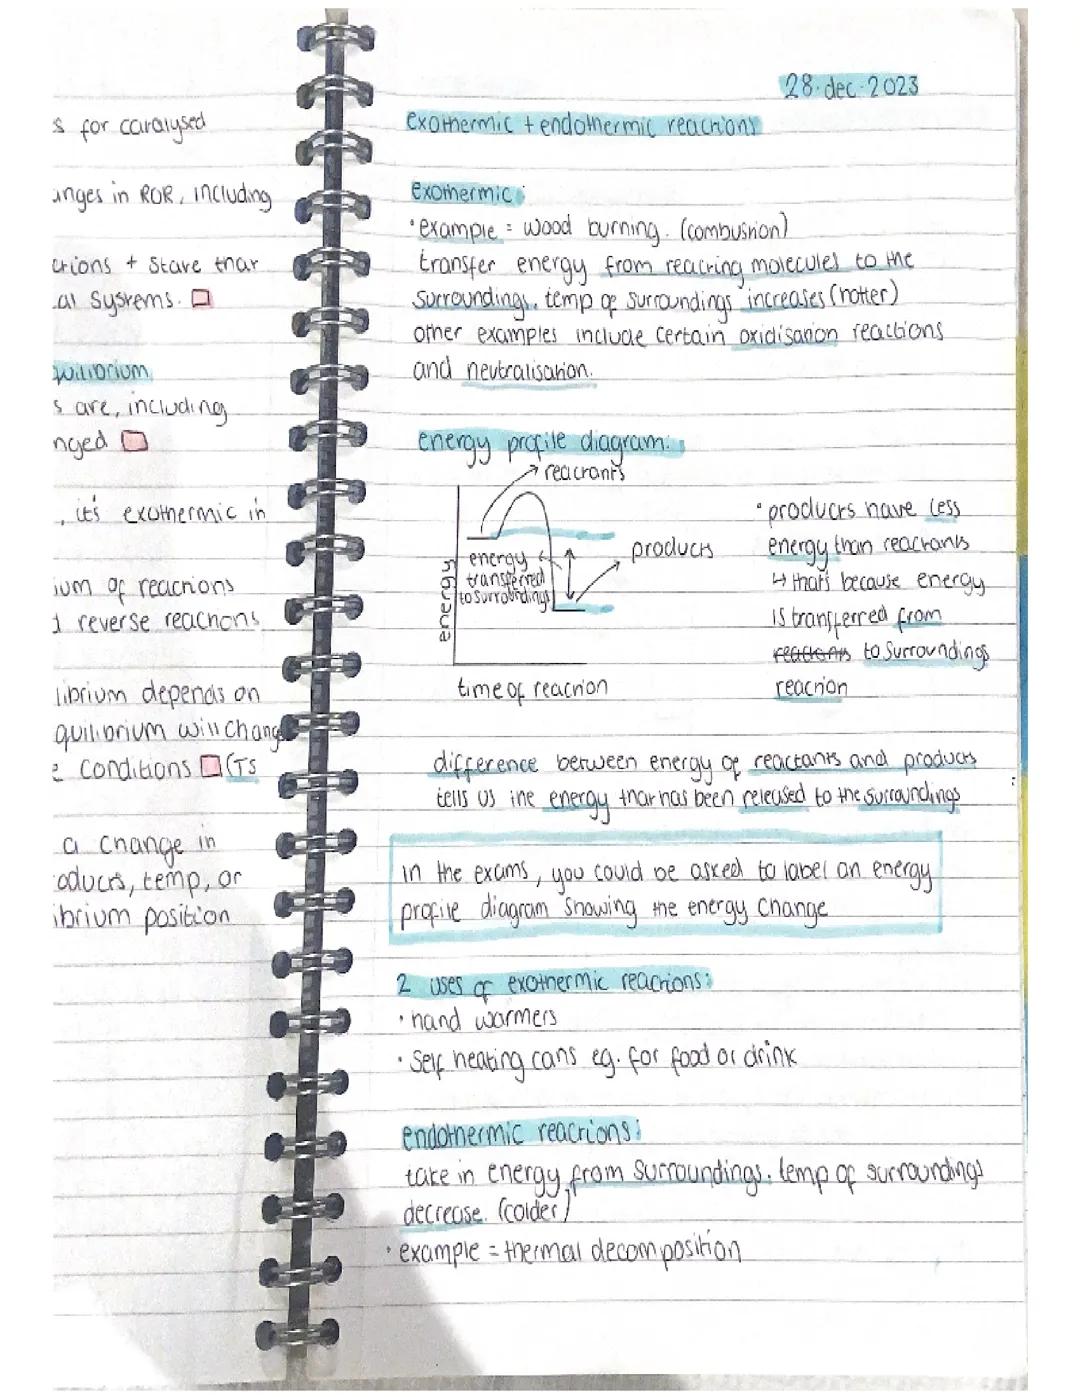 s for catalysed
anges in ROR, including
ctions + state that
al systems.
quilibrium
s are, including
nged
, it's exothermic in
ium of reactions
d reverse reactions
librium depends on
quilibrium will change
e conditions (TS
a change in
oducts, temp, or
ibrium position
28.dec.2023
exothermic + endothermic reactions
exothermic:
• example = wood burning. (combustion)
transfer energy from reacting molecules to the
surroundings. temp of surroundings increases (hotter)
other examples include certain oxidisation reactions
and neutralisation.
energy profile diagram:
reactants
products
energy
transferred
to surroundings
energy
time of reaction
• products have less
energy than reactants
↳ that's because energy
is transferred from
reactants to surroundings
reaction
difference between energy of reactants and products
tells us the energy that has been released to the surroundings
in the exams, you could be asked to label an energy
profile diagram showing the energy change
2 uses of exothermic reactions:
• hand warmers
• self heating cans eg. for food or drink
endothermic reactions:
take in energy from surroundings. temp of surroundings
decrease. (colder)
• example = thermal decomposition